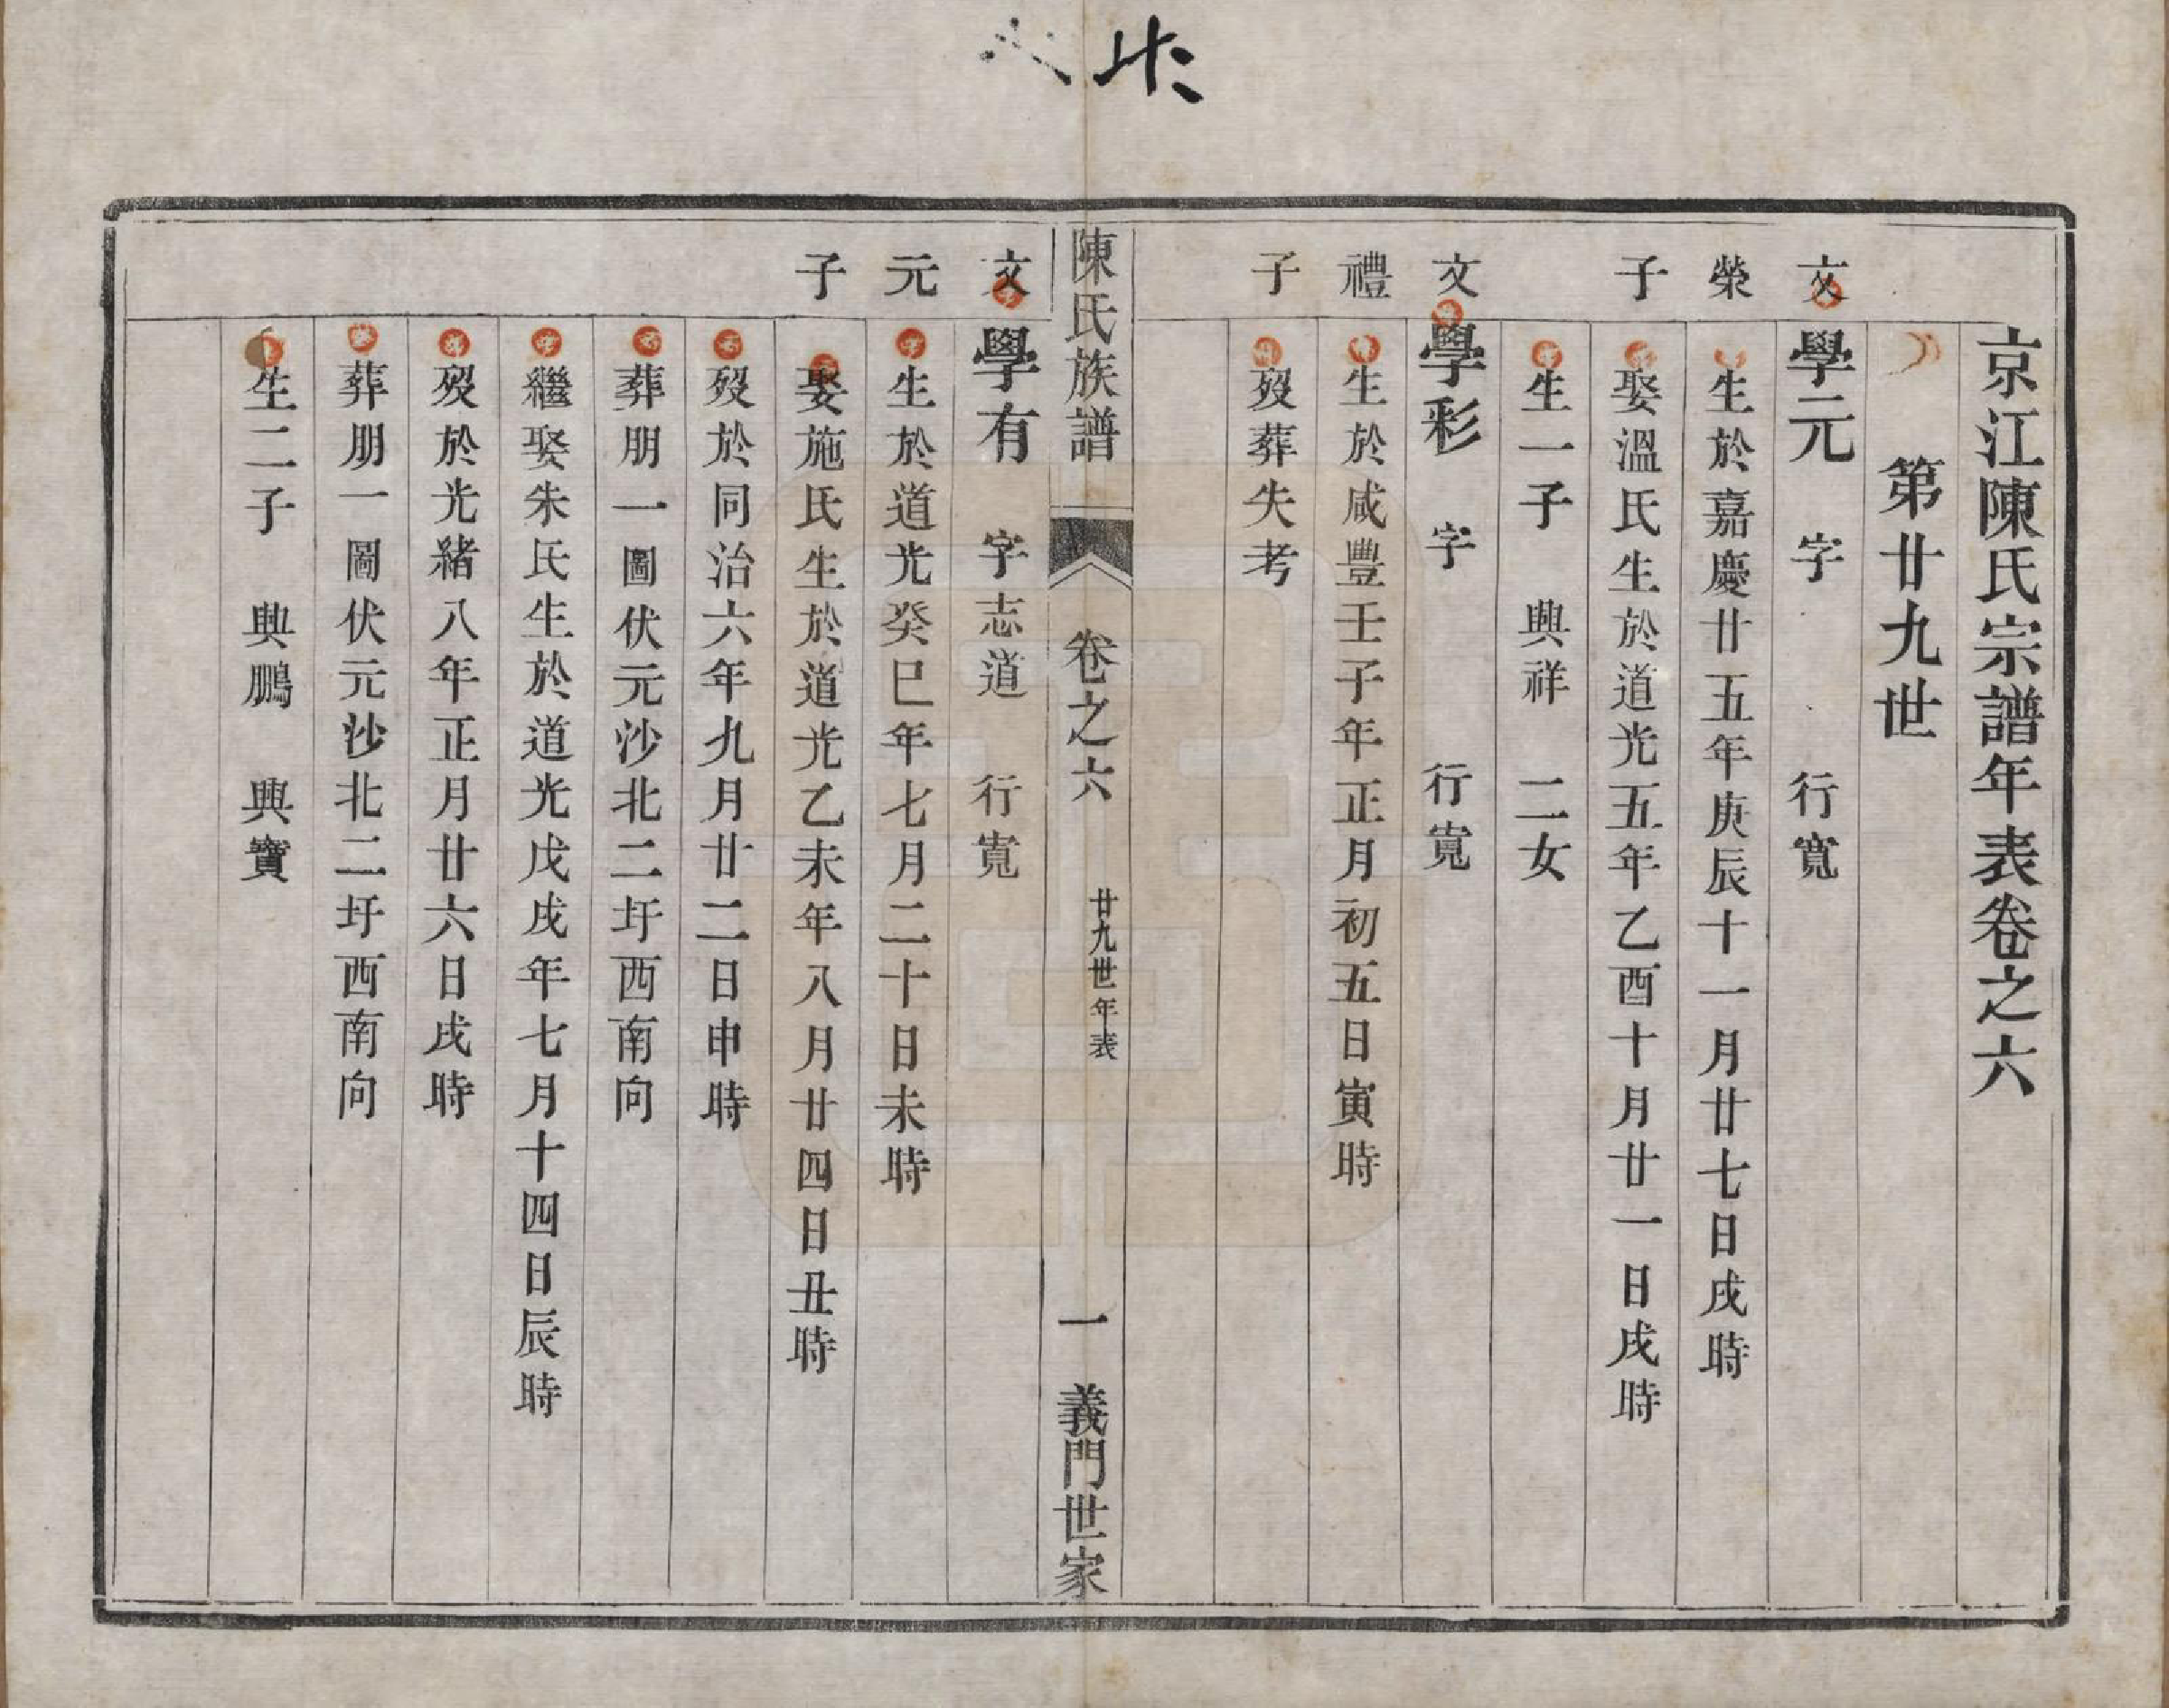 京江陳氏宗譜年表卷之六
第廿九世
文榮子
學元 字 行寬
生於嘉慶廿五年庚辰十一月廿七日戌時
娶溫氏生於道光五年乙酉十月廿一日戌時
生一子 興祥 二女
文禮子
學彩 字 行寬
生於咸豐壬子年正月初五日寅時
歿葬失考
陳氏族譜 卷之六 廿九世年表 一 義門世家
文元子
學有 字志道 行寬
生於道光癸巳年七月二十日未時
娶施氏生於道光乙未年八月廿四日丑時
歿於同治六年九月廿二日申時
葬朋一圖伏元沙北二圩西南向
繼娶朱氏生於道光戊戌年七月十四日辰時
歿於光緒八年正月廿六日戌時
葬朋一圖伏元沙北二圩西南向
生二子 興鵬 興寶